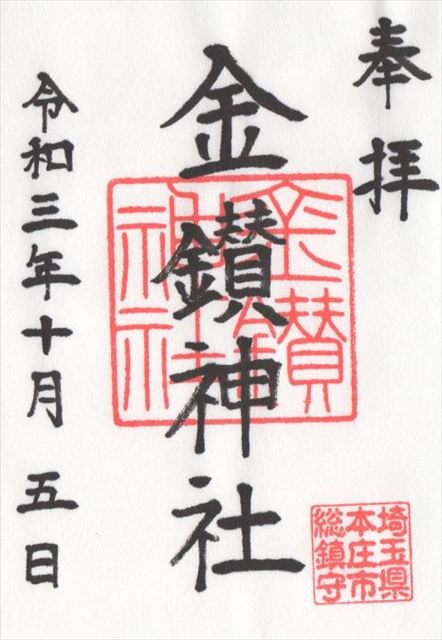 奉拝
金鑚神社
金鑚神社
埼玉県
本庄市
総鎮守
令和三年十月五日